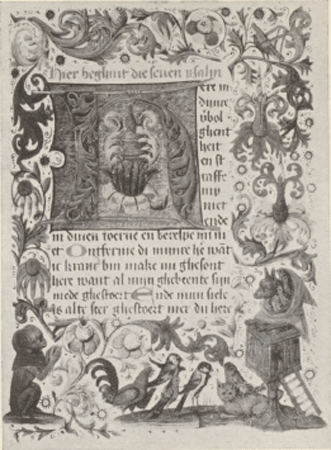 Hier beghint die seuen psalm
ere in
dijnre
v̄bol
ghent
heit
en st
raffe
my
niet
ende
in dinen toerne en berespe mi ni
et Ontferme di mijnre h̄e wāt
ic kranc bin make mi ghesont
here want al mijn ghebeente sijn
mede ghestoert Ende mijn siele
is alte seer ghestoert mer du here